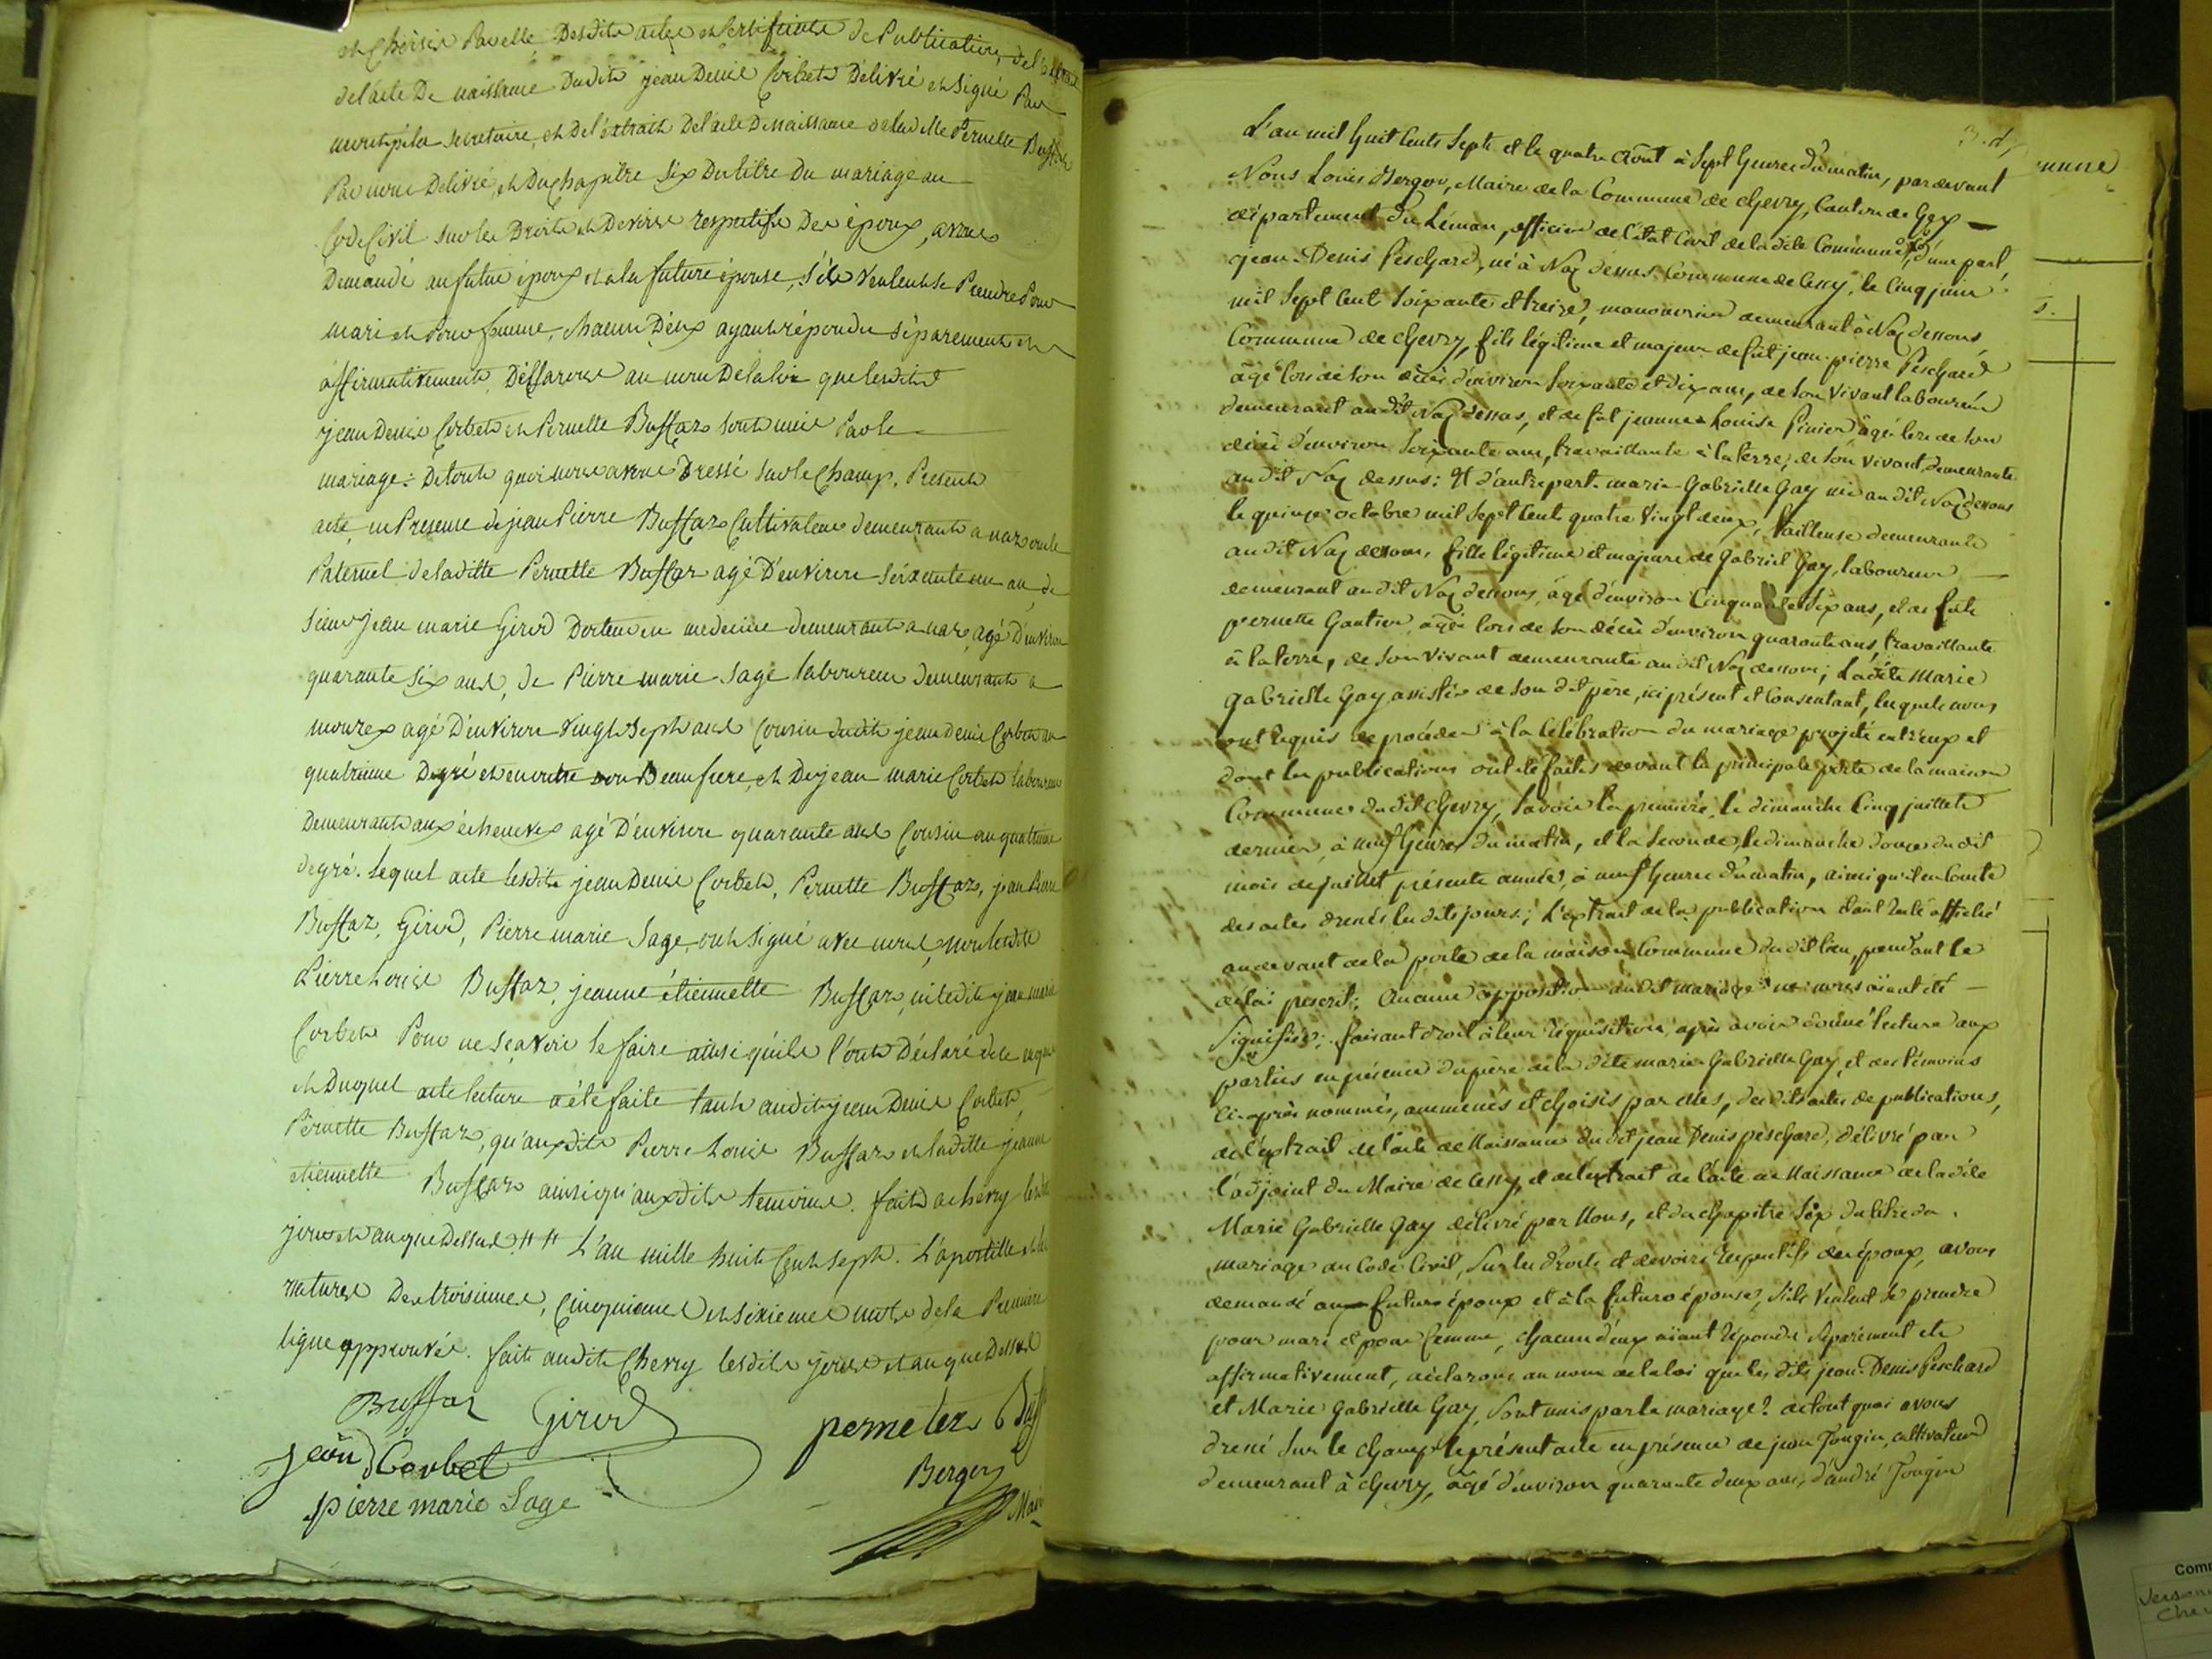 et Choisis Par elle Desdits actes et Certificats de Publication, de l'extrait
de l'acte De naissance Dudit jean Denis Corbet Délivré et Signé Par
secretaire, et de l'extrait De l'acte De naissance de laditte Pernette Buffaz
Par nous Délivré, et Du Chapitre Six Du titre Du mariage au
Code Civil Sur les Droits et Devoirs respectifs Des époux, avons
Demandé au futur époux et a la future épouse, s'ils veulent se Prendre Pour
mari et Pour femme, chacun D'eux ayant répondu séparement et
affirmativement, Déclarons au nom De la loi que lesdits
jean Denis Corbet et Pernette Buffaz sont unis Par le
mariage : De tout quoi nous avons Dressé Sur le Champ, Present
acte, en Presence de jean Pierre Buffaz Cultivateur demeurant a naz oncle
Paternel de laditte Pernette Buffaz agé D'environ soixante un an, de
sieur Jean marie Girod Docteur en medecine demeurant a naz, agé D'environ
quarante six ans, de Pierre marie Sage laboureur demeurant a
mourex agé D'environ vingt Sept ans Cousin dudit jean denis Corbet au
quatrieme Degré et en outre son Beaufrere, et De jean marie Corbet laboureur
Demeurant aux échenevex agé D'environ quarante ans Cousin au quatrieme
degré. Lequel acte lesdits jean Denis Corbet, Pernette Buffaz, jean Pierre
Buffaz, Girod, Pierre marie Sage ont Signé avec nous, non lesdits
Pierre Louis Buffaz, jeanne étiennette Buffaz, ni ledit jean marie
Corbet Pour ne sçavoir le faire ainsi qu'ils l'ont Déclaré de ce requis
et Duquel acte lecture a été faite tant audit jean Denis Corbet,
Pernette Buffaz, qu'auxdits Pierre Louis Buffaz et laditte jeanne
étiennette Buffaz ainsi qu'auxdits temoins. fait a chevry lesdits
jour et an que Dessus. ## L'an mille huit Cent Sept. L'apostille et les
ratures Des troisieme, Cinquieme et sixieme mots de la Premiere
ligne approuvés. fait audit Chevry lesdits jour et an que Dessus
Buffaz Girod perneter Buff
jean d Corbet Berger
pierre marie Sage Maire
3. d.
L'an mil huit Cents Sept et le quatre Août à Sept heures du matin, par devant
Nous Louis Berger, Maire de la Commune de chevry, Canton de Gex
département Du Léman, officier de l'état Civil de la dite Commune, d'une part,
jean-Denis Peschard, né à Naz dessus Commune de Cessy, le Cinq juin
mil Sept Cent Soixante et treize, manouvrier demeurant à Naz dessous
Commune de chevry, fils légitime et majeur de fut jean-pierre Peschard
âgé lors de son décès d'environ Soixante et dix ans, de son vivant laboureur
demeurant au dit Naz dessus, et de fut jeanne Louise Pinier âgée lors de son
décès d'environ Soixante ans, travaillante à la terre, de son vivant, demeurante
au dit Naz dessus : Et d'autre part. marie-Gabrielle Gay née au dit Naz dessous
le quinze octobre mil Sept Cent quatre vingt deux, tailleuse demeurante
au dit Naz dessous, fille légitime et majeure de Gabriel Gay, laboureur
demeurant au dit Naz dessous, âgé d'environ Cinquante Six ans, et de fute
pernette Gautier, agée lors de son décès d'environ quarante ans, travaillante
à la terre, de son vivant demeurante au dit Naz dessous ; La dite Marie
gabrielle Gay assistée de son dit père, ici présent et Consentant, lesquels nous
ont requis de procéder à la Célébration du mariage projeté entr'eux et
dont les publications ont été faites devant la principale porte de la maison
Commune du dit chevry, savoir la première, le dimanche Cinq juillet
dernier, à neuf heures du matin, et la Seconde, le dimanche douze du dit
mois de juillet présente année, à neuf heures du matin, ainsi qu'il en Conste
des actes dressés les dits jours ; L'extrait de la publication étant resté affiché
au devant de la porte de la maison Commune du dit lieu, pendant le
délai prescrit ; Aucune opposition au dit mariage ne nous aiant été
Signifiée : faisant droit à leur réquisition, après avoir donné lecture aux
parties en présence du père de la dite marie Gabrielle Gay, et des témoins
Ci-après nommés, ammenés et choisis par elles, des dits actes de publications,
de l'extrait de l'acte de Naissance du dit jean Denis péschard, délivré par
l'adjoint du Maire de Cessy, et de l'extrait de l'acte de Naissance de la dite
Marie Gabrielle Gay délivré par Nous, et du chapitre Six du titre du
mariage au Code Civil, Sur les droits et devoirs respectifs des époux, avons
demandé au futur époux et à la future épouse, s'ils veulent se prendre
pour mari et pour femme, chacun d'eux aïant répondu séparément et
affirmativement, déclarons au nom de la loi que les dits jean-Denis Peschard
et Marie Gabrielle Gay, Sont unis par le mariage : de tout quoi avons
dressé Sur le champ le présent acte en présence de jean Fongin, cultivateur
demeurant à chevry, âgé d'environ quarante deux ans, d'andré Fongin
Com
Che